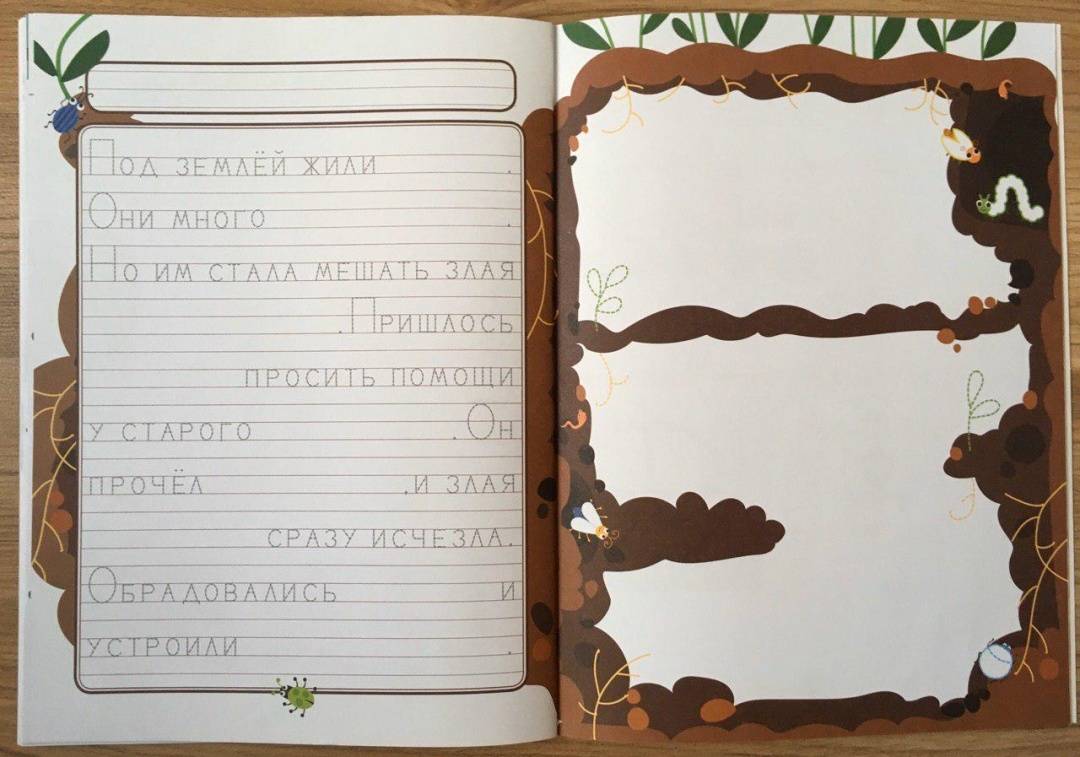 Под землёй жили .
Они много .
Но им стала мешать злая
. Пришлось
просить помощи
у старого . Он
прочёл , и злая
сразу исчезла.
Обрадовались и
устроили .